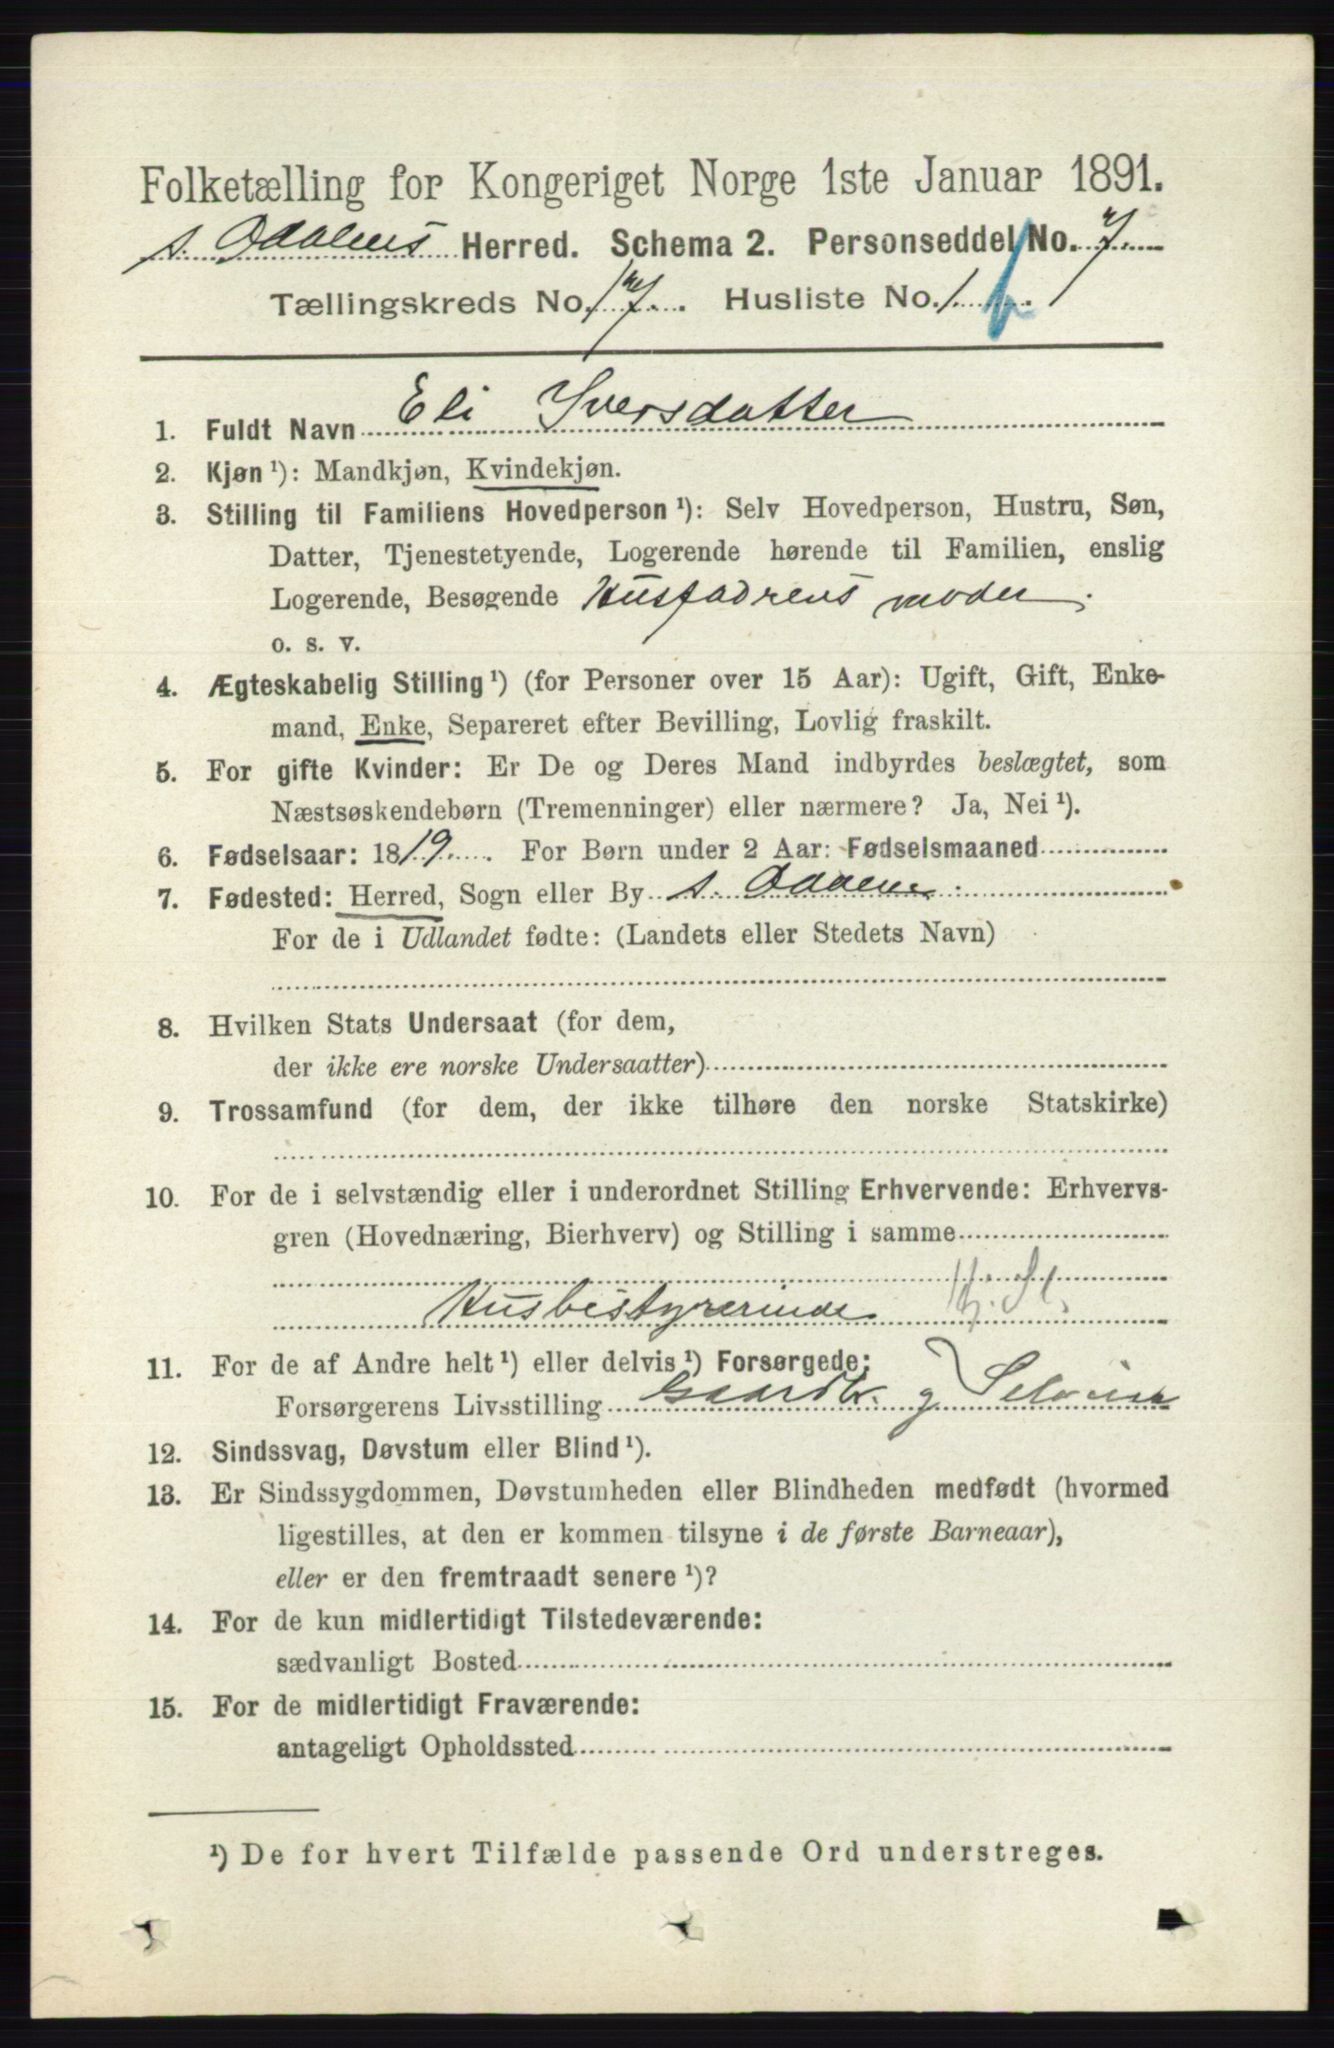 Folketælling for Kongeriget Norge 1ste Januar 1891.
s. Odalens Herred. Schema 2. Personseddel No. 7.
Tællingskreds No. 17. Husliste No. 1.
1. Fuldt Navn Eli Iversdatter
2. Kjøn ¹): Mandkjøn, Kvindekjøn.
3. Stilling til Familiens Hovedperson ¹): Selv Hovedperson, Hustru, Søn,
Datter, Tjenestetyende, Logerende hørende til Familien, enslig
Logerende, Besøgende Husfadrens moder.
o. s. v.
4. Ægteskabelig Stilling ¹) (for Personer over 15 Aar): Ugift, Gift, Enke-
mand, Enke, Separeret efter Bevilling, Lovlig fraskilt.
5. For gifte Kvinder: Er De og Deres Mand indbyrdes beslægtet, som
Næstsøskendebørn (Tremenninger) eller nærmere? Ja, Nei ¹).
6. Fødselsaar: 1819. For Børn under 2 Aar: Fødselsmaaned
7. Fødested: Herred, Sogn eller By s. Odalen.
For de i Udlandet fødte: (Landets eller Stedets Navn)
8. Hvilken Stats Undersaat (for dem,
der ikke ere norske Undersaatter)
9. Trossamfund (for dem, der ikke tilhøre den norske Statskirke)
10. For de i selvstændig eller i underordnet Stilling Erhvervende: Erhvervs-
gren (Hovednæring, Bierhverv) og Stilling i samme
Husbestyrerinde
11. For de af Andre helt ¹) eller delvis ¹) Forsørgede:
Forsørgerens Livsstilling Gaardbr. g Selveier
12. Sindssvag, Døvstum eller Blind ¹).
13. Er Sindssygdommen, Døvstumheden eller Blindheden medfødt (hvormed
ligestilles, at den er kommen tilsyne i de første Barneaar),
eller er den fremtraadt senere ¹)?
14. For de kun midlertidigt Tilstedeværende:
sædvanligt Bosted
15. For de midlertidigt Fraværende:
antageligt Opholdssted
¹) De for hvert Tilfælde passende Ord understreges.